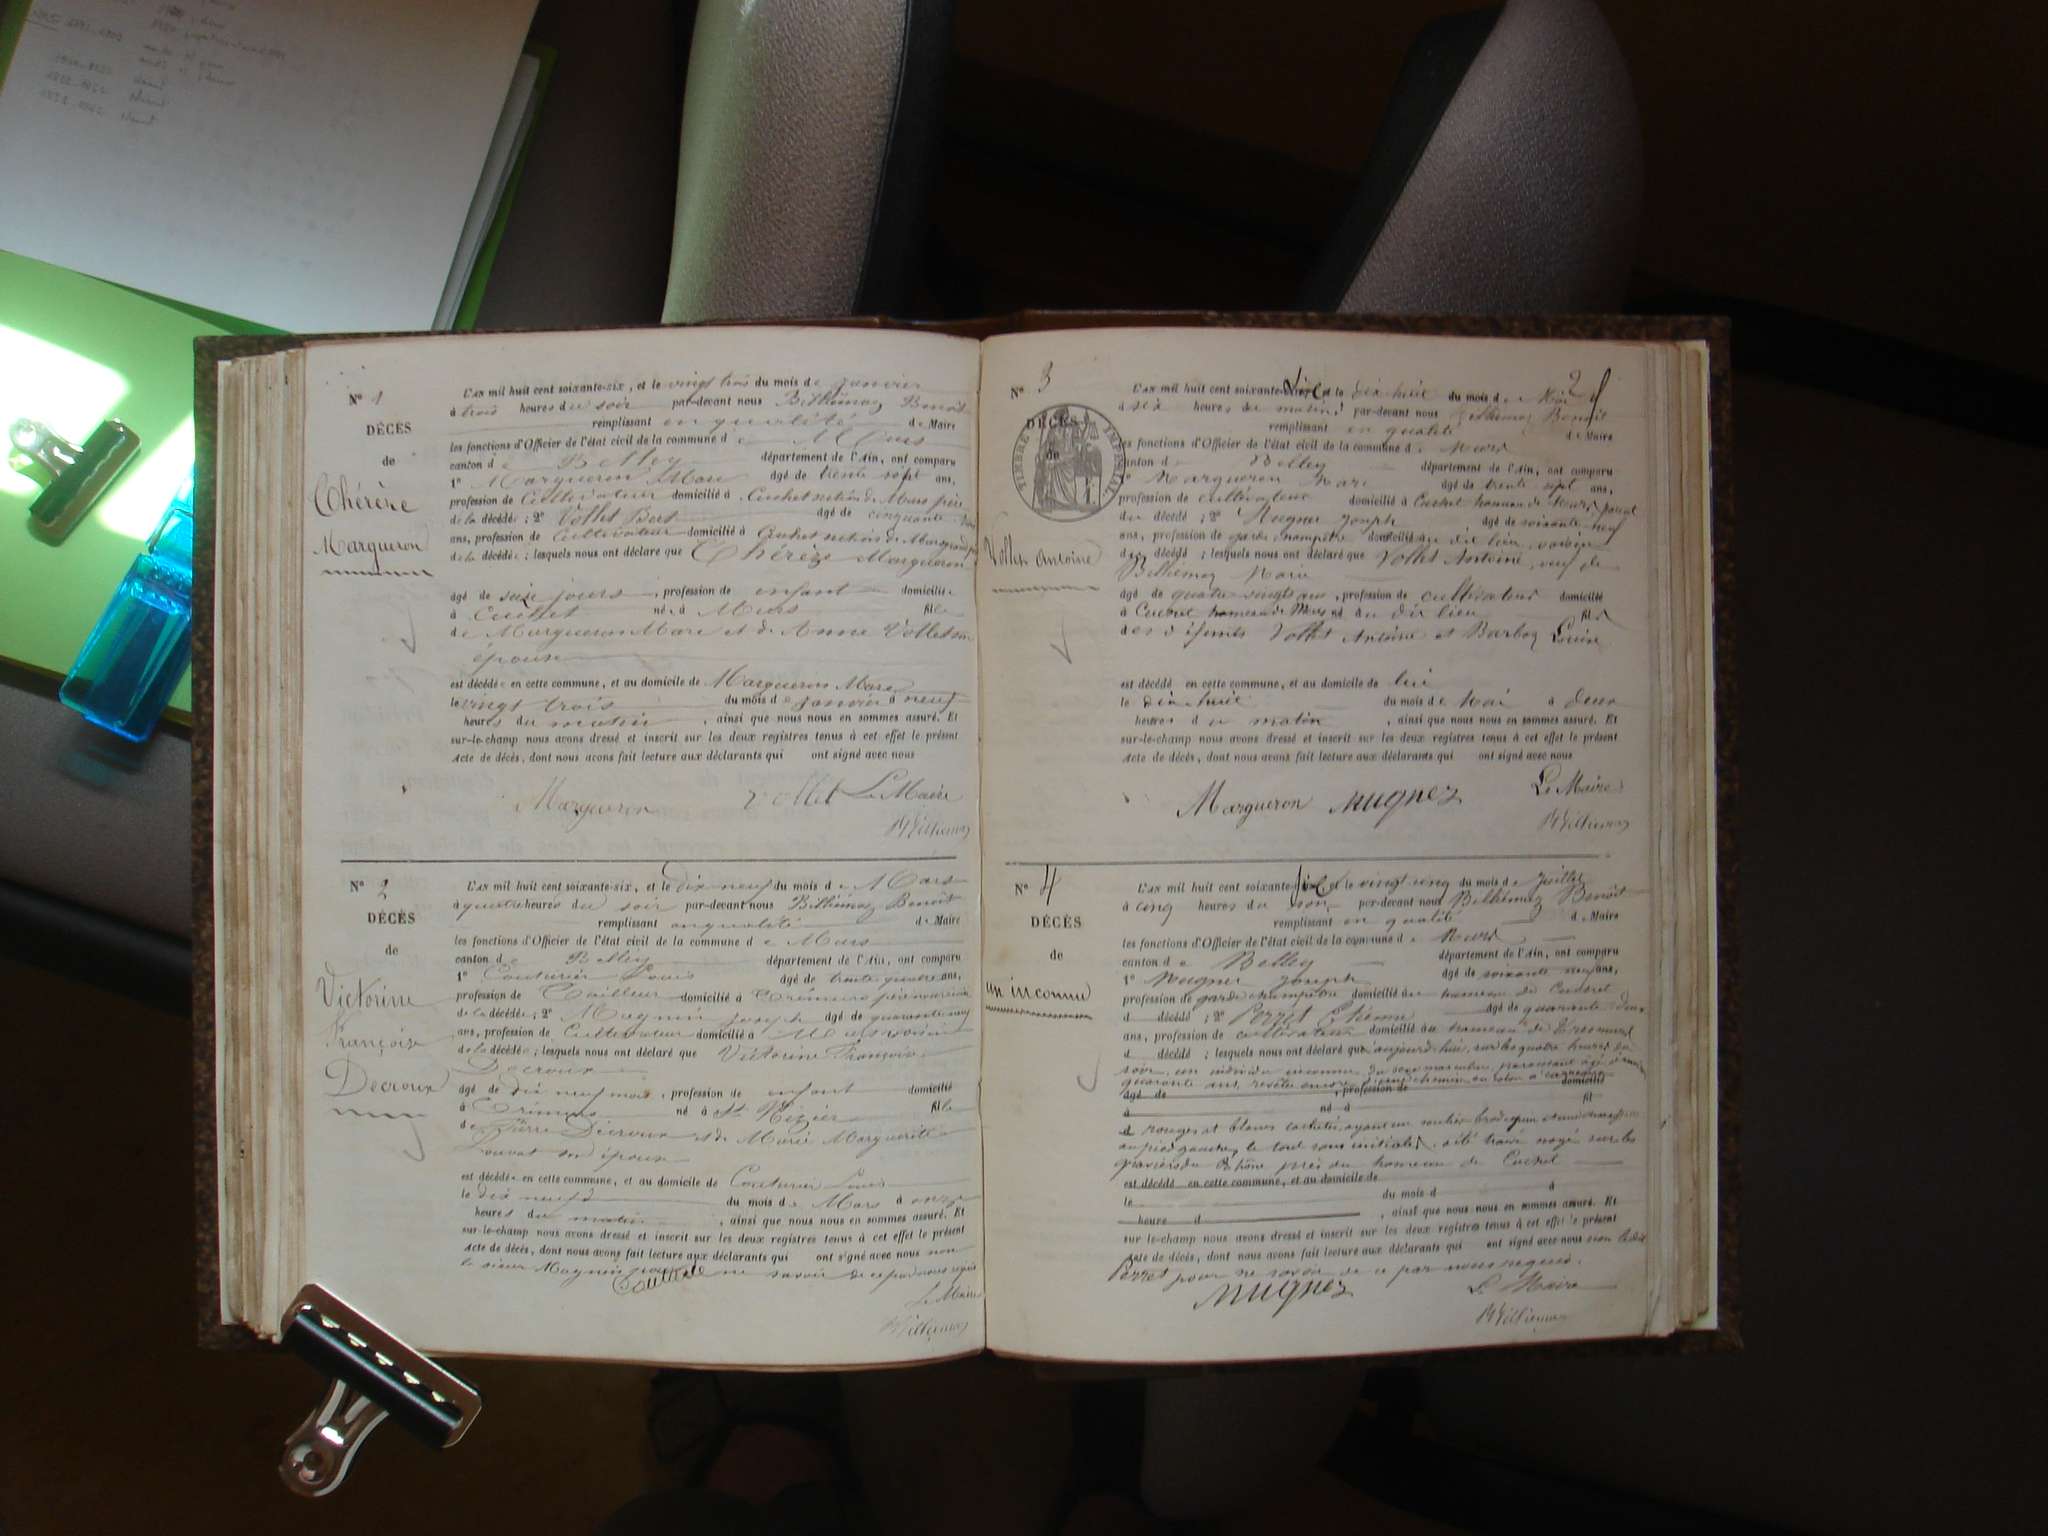 N° 1
DÉCÈS
de
Thérèze
Margueron
L'AN mil huit cent soixante-six, et le vingt trois du mois de janvier
à trois heures du soir par-devant nous Billiémaz Benoit
remplissant en qualité de Maire
les fonctions d'Officier de l'état civil de la commune de Murs
canton de Belley département de l'Ain, ont comparu
1° Margueron Marc âgé de trente sept ans,
profession de Cultivateur domicilié à Cuchet section de Murs père
de la décédée ; 2° Vollet Bert âgé de cinquante
ans, profession de Cultivateur domicilié à Cuchet section de Murs
de la décédée ; lesquels nous ont déclaré que Thérèze Margueron
âgé de seize jours, profession de enfant domiciliée
à Cuchet née à Murs fille
de Margueron Marc et de Anne Vollet son
épouse
est décédée en cette commune, et au domicile de Margueron Marc
le vingt trois du mois de janvier à neuf
heures du matin, ainsi que nous nous en sommes assuré. Et
sur-le-champ nous avons dressé et inscrit sur les deux registres tenus à cet effet le présent
Acte de décès, dont nous avons fait lecture aux déclarants qui ont signé avec nous
Margueron Vollet Le Maire
Billiémaz
N° 2
DÉCÈS
de
Victorine
Françoise
Decroux
L'AN mil huit cent soixante-six, et le dix neuf du mois de Mars
à quatre heures du soir par-devant nous Billiémaz Benoit
remplissant en qualité de Maire
les fonctions d'Officier de l'état civil de la commune de Murs
canton de Belley département de l'Ain, ont comparu
1° Couturier Louis âgé de trente quatre ans,
profession de Tailleur domicilié à Crémieu
de la décédée ; 2° Magnin joseph âgé de quarante neuf
ans, profession de Cultivateur domicilié à Murs voisin
de la décédée ; lesquels nous ont déclaré que Victorine Françoise
Decroux
âgé de dix neuf mois, profession de enfant domicilié
à née à St Nizier fille
de Pierre Decroux et de Marie Marguerite
Louvat son épouse
est décédée en cette commune, et au domicile de Couturier Louis
le dix neuf du mois de Mars à onze
heures du matin, ainsi que nous nous en sommes assuré. Et
sur-le-champ nous avons dressé et inscrit sur les deux registres tenus à cet effet le présent
Acte de décès, dont nous avons fait lecture aux déclarants qui ont signé avec nous non
le sieur Magnin pour ne savoir de ce par nous requis
Le Maire
Billiémaz
2
N° 3
DÉCÈS
de
TIMBRE IMPÉRIAL
Vollet Antoine
L'AN mil huit cent soixante-six et le dix huit du mois de Mai
à six heures du matin par-devant nous Billiémaz Benoit
remplissant en qualité de Maire
les fonctions d'Officier de l'état civil de la commune de Murs
canton de Belley département de l'Ain, ont comparu
1° Margueron Marc âgé de trente sept ans,
profession de cultivateur domicilié à Cuchet hameau de Murs
du décédé ; 2° Mugner joseph âgé de soixante-neuf
ans, profession de garde champêtre domicilié au dit lieu, voisin
du décédé ; lesquels nous ont déclaré que Vollet Antoine, veuf de
Billiémaz Marie
âgé de quatre vingts ans, profession de cultivateur domicilié
à Cuchet hameau de Murs né au dit lieu fils
des défunts Vollet Antoine et Barbaz Louise
est décédé en cette commune, et au domicile de lui
le dix huit du mois de Mai à deux
heures du matin, ainsi que nous nous en sommes assuré. Et
sur-le-champ nous avons dressé et inscrit sur les deux registres tenus à cet effet le présent
Acte de décès, dont nous avons fait lecture aux déclarants qui ont signé avec nous
Margueron Mugnez Le Maire
Billiémaz
N° 4
DÉCÈS
de
un inconnu
L'AN mil huit cent soixante-six et le vingt cinq du mois de juillet
à cinq heures du soir par-devant nous Billiémaz Benoit
remplissant en qualité de Maire
les fonctions d'Officier de l'état civil de la commune de Murs
canton de Belley département de l'Ain, ont comparu
1° Mugner joseph âgé de soixante neuf ans,
profession de garde champêtre domicilié au hameau de Cuchet
d décédé ; 2° Perret Etienne âgé de quarante deux
ans, profession de cultivateur domicilié au hameau de
d décédé ; lesquels nous ont déclaré que aujourd'hui, sur les quatre heures du
soir, un individu inconnu du sexe masculin, paraissant âgé d'environ
quarante ans, revêtu encore d'une chemise en coton à carreaux
âgé de profession de domicilié
à né à fil
d rouges et blancs ayant un soulier brodequin
au pied gauche, le tout sans initiales, a été trouvé noyé sur les
graviers du Rhône près du hameau de Cuchet
est décédé en cette commune, et au domicile de
le du mois d à
heure d, ainsi que nous nous en sommes assuré. Et
sur-le-champ nous avons dressé et inscrit sur les deux registres tenus à cet effet le présent
Acte de décès, dont nous avons fait lecture aux déclarants qui ont signé avec nous non ledit
Perret pour ne savoir de ce par nous requis.
Mugnez Le Maire
Billiémaz